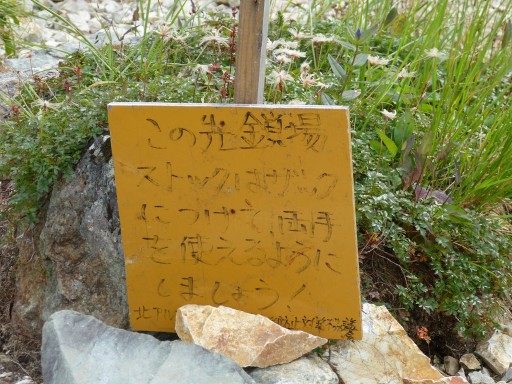 この先鎖場
ストックはザック
につけて両手
を使えるように
しましょう!
北ア